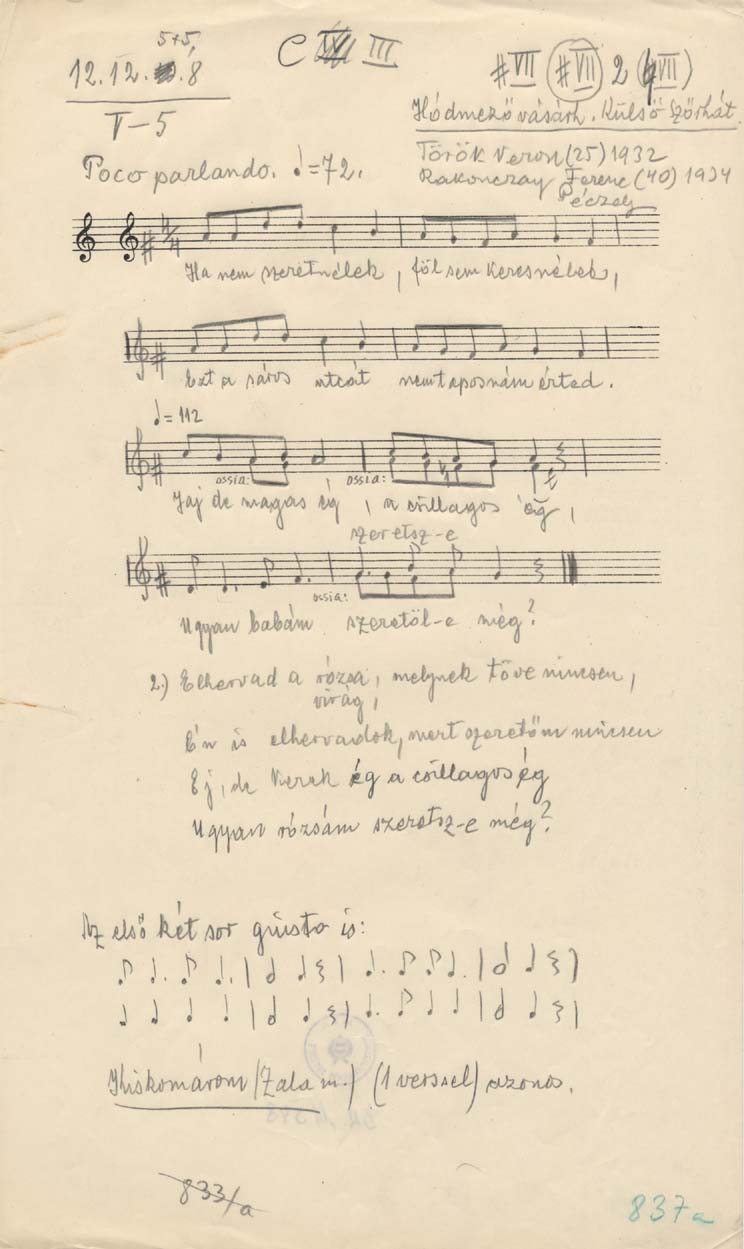 5+5,
12.12. .8
V-5
C III
#VII #VII 2 (VII)
Hódmezővásárh. Külső Szőrhát.
Török Veron (25) 1932
Rakonczay Ferenc (40) 1934
Péczely
Poco parlando. ♩=72.
4/4
Ha nem szeretnélek, föl sem keresnélek,
Ezt a sáros utcát nem taposnám érted.
♩= 112
ossia: ossia:
Jaj de magas ég, a csillagos ég,
szeretsz-e
ossia:
Ugyan babám szeretöl-e még?
2.) Elhervad a rózsa, melynek töve nincsen,
virág,
Én is elhervadok, mert szeretőm nincsen
Ej, de kerek ég a csillagos ég
Ugyan rózsám szeretsz-e még?
Az első két sor giusto is:
Kiskomárom (Zala m.) (1 verssel) azonos.
833/a
837a